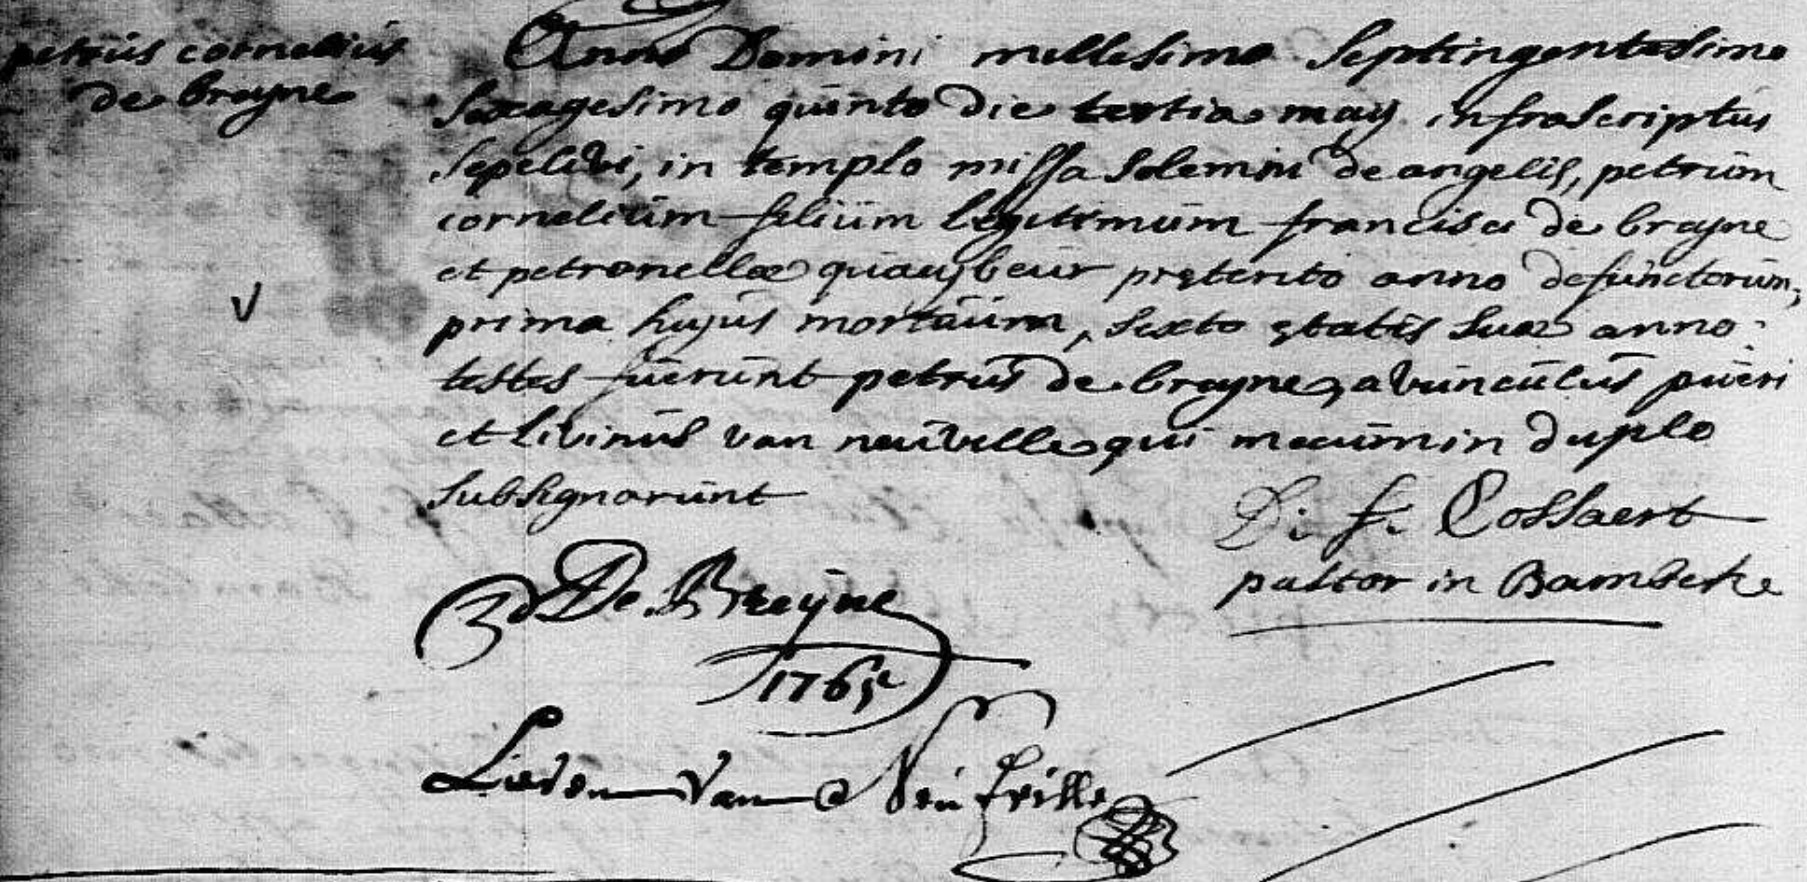 petrus cornelius
de breyne
Anno Domini millesimo septingentesimo
sexagesimo quinto die tertia maij infrascriptus
sepelivi, in templo missa solemni de angelis, petrum
cornelium filium legitimum francisci de breyne
et petronellæ quaeybeur pręterito anno defunctorum,
prima hujus mortuum, sexto ętatis suæ anno:
testes fuerunt petrus de breyne, avunculus pueri
et livinus van neuville, qui mecum in duplo
subsignarunt
D: f: Cossaert
pastor in Bambeke
De Breÿne
1765
Lieven van Neufville